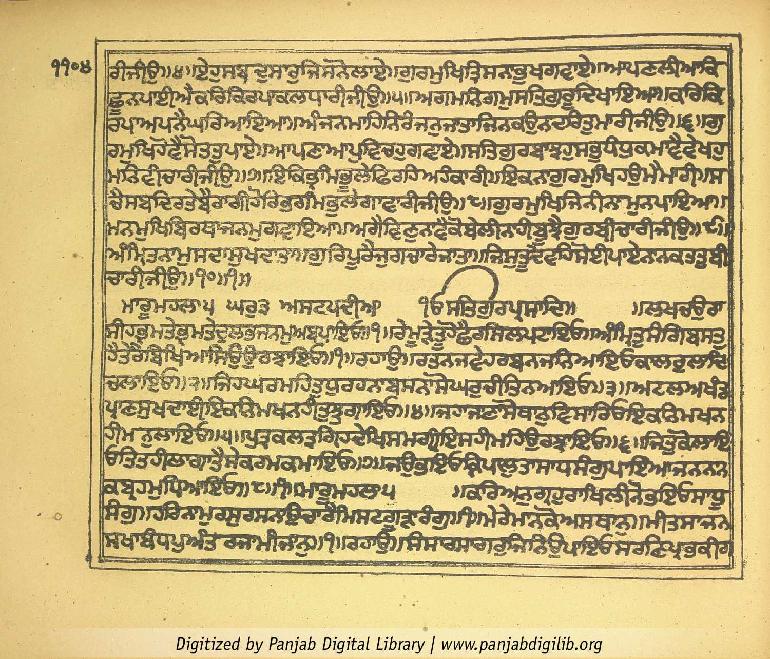 ੧੧੦੪
ਰੀਜੀਉ॥੪॥ਏਹੁਸਬਦੁਸਾਰੁਜਿਸਨੋਲਾਏ॥ਗੁਰਮੁਖਿਤ੍ਰਿਸਨਾਭੁਖਗਵਾਏ॥ਆਪਣਲੀਆਕਿ
ਛੂਨਪਾਈਐਕਰਿਕਿਰਪਾਕਲਧਾਰੀਜੀਉ॥੫॥ਅਗਮਨਿਗਮੁਸਤਿਗੁਰੂਦਿਖਾਇਆ॥ਕਰਿਕਿ
ਰਪਾਅਪਨੈਘਰਿਆਇਆ॥ਅੰਜਨਮਾਹਿਨਿਰੰਜਨੁਜਾਤਾਜਿਨਕਉਨਦਰਿਤੁਮਾਰੀਜੀਉ॥੬॥ਗੁ
ਰਮੁਖਿਹੋਵੈਸੋਤਤੁਪਾਏ॥ਆਪਣਾਆਪੁਵਿਚਹੁਗਵਾਏ॥ਸਤਿਗੁਰਬਾਝਹੁਸਭੁਧੰਧੁਕਮਾਵੈਵੇਖਹੁ
ਮਨਿਵੀਚਾਰੀਜੀਉ॥੭॥ਇਕਿਭ੍ਰਮਿਭੂਲੇਫਿਰਹਿਅਹੰਕਾਰੀ॥ਇਕਨਾਗੁਰਮੁਖਿਹਉਮੈਮਾਰੀ॥ਸ
ਚੈਸਬਦਿਰਤੇਬੈਰਾਗੀਹੋਰਿਭਰਮਿਭੁਲੇਗਾਵਾਰੀਜੀਉ॥੮॥ਗੁਰਮੁਖਿਜਿਨੀਨਾਮੁਨਪਾਇਆ॥
ਮਨਮੁਖਿਬਿਰਥਾਜਨਮੁਗਵਾਇਆ॥ਅਗੈਵਿਣੁਨਾਵੈਕੋਬੇਲੀਨਾਹੀਬੂਝੈਗੁਰਬੀਚਾਰੀਜੀਉ॥੯॥
ਅੰਮ੍ਰਿਤਨਾਮੁਸਦਾਸੁਖਦਾਤਾ॥ਗੁਰਿਪੂਰੈਜੁਗਚਾਰੇਜਾਤਾ॥ਜਿਸੁਤੂਦੇਵਹਿਸੋਈਪਾਏਨਾਨਕਤਤੁਬੀ
ਚਾਰੀਜੀਉ॥੧੦॥੧॥
ਮਾਰੂਮਹਲਾ੫ ਘਰੁ੩ ਅਸਟਪਦੀਆ ੴਸਤਿਗੁਰਪ੍ਰਸਾਦਿ॥ ॥ਲਖਚਉਰਾ
ਸੀਹਭ੍ਰਮਤੇਭ੍ਰਮਤੇਦੁਲਭਜਨਮੁਅਬਪਾਇਓ॥੧॥ਰੇਮੂੜੇਤੂਹੋਛੈਰਸਿਲਪਟਾਇਓ॥ਅੰਮ੍ਰਿਤੁਸੰਗਿਬਸਤੁ
ਹੈਤੇਰੈਬਿਖਿਆਸਿਉਉਰਝਾਇਓ॥੧॥ਰਹਾਉ॥ਰਤਨਜਵੇਹਰਬਨਜਨਿਆਇਓਕਾਲਰੁਲਾਦਿ
ਚਲਾਇਓ॥੨॥ਜਿਹਘਰਮਹਿਤੁਧੁਰਹਨਾਬਸਨਾਸੋਘਰੁਚੀਤਿਨਆਇਓ॥੩॥ਅਟਲਅਖੰਡ
ਪ੍ਰਾਣਸੁਖਦਾਈਇਕਨਿਮਖਨਹੀਤੁਝੁਗਾਇਓ॥੪॥ਜਹਾਜਾਣਾਸੋਥਾਨੁਵਿਸਾਰਿਓਇਕਨਿਮਖਨ
ਹੀਮਨੁਲਾਇਓ॥੫॥ਪੁਤ੍ਰਕਲਤ੍ਰਗ੍ਰਿਹਦੇਖਿਸਮਗ੍ਰੀਇਸਹੀਮਹਿਉਰਝਾਇਓ॥੬॥ਜਿਤੁਕੋਲਾਇ
ਓਤਿਤਹੀਲਾਗਾਤੈਸੇਕਰਮਕਮਾਇਓ॥੭॥ਜਉਭਇਓਕ੍ਰਿਪਾਲੁਤਾਸਾਧਸੰਗੁਪਾਇਆਜਨਨਾਨ
ਕਬ੍ਰਹਮੁਧਿਆਇਓ॥੮॥੧॥ਮਾਰੂਮਹਲਾ੫ ॥ਕਰਿਅਨੁਗ੍ਰਹੁਰਾਖਿਲੀਨੋਭਇਓਸਾਧੂ
ਸੰਗੁ॥ਹਰਿਨਾਮਰਸੁਰਸਨਾਉਚਾਰੈਮਿਸਟਗੂੜਾਰੰਗੁ॥੧॥ਮੇਰੇਮਾਨਕੋਅਸਥਾਨੁ॥ਮੀਤਸਾਜਨ
ਸਖਾਬੰਧਪੁਅੰਤਰਜਾਮੀਜਾਨੁ॥੧॥ਰਹਾਉ॥ਸੰਸਾਰਸਾਗਰੁਜਿਨਿਉਪਾਇਓਸਰਣਿਪ੍ਰਭਕੀਗ
Digitized by Panjab Digital Library | www.panjabdigilib.org